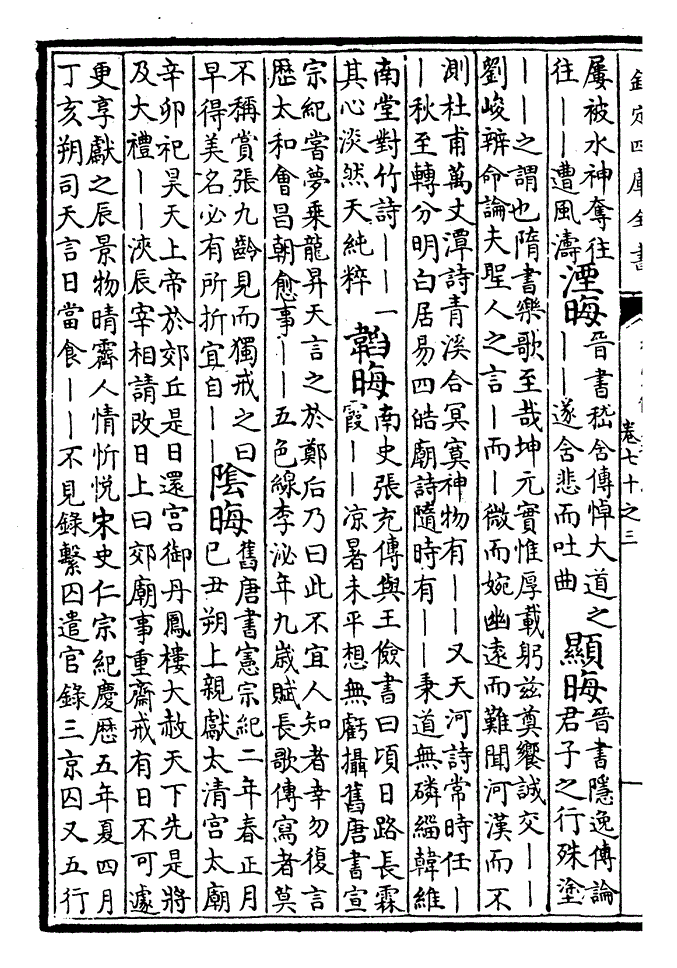 欽定四庫全書
卷七十之三
屢被水神奪往
往丨丨遭風濤
湮晦
晉書嵇含傳悼大道之
丨丨遂含悲而吐曲
顯晦
晉書隱逸傳論
君子之行殊塗
丨丨之謂也隋書樂歌至哉坤元實惟厚載躬兹奠饗誠交丨丨
劉峻辨命論夫聖人之言丨而丨微而婉幽遠而難聞河漢而不
測杜甫萬丈潭詩青溪合冥寞神物有丨丨又天河詩常時任丨
丨秋至轉分明白居易四皓廟詩隨時有丨丨秉道無磷緇韓維
南堂對竹詩丨丨一自
其心淡然天純粹
韜晦
南史張充傳與王儉書曰頃日路長霖
霞丨丨凉暑未平想無虧攝舊唐書宣
宗紀嘗夢乘龍昇天言之於鄭后乃曰此不宜人知者幸勿復言
歷太和會昌朝愈事丨丨五色線李泌年九歲賦長歌傳寫者莫
不稱賞張九齡見而獨戒之曰
早得美名必有所折宜自丨丨
陰晦
舊唐書憲宗紀二年春正月
己丑朔上親獻太清宫太廟
辛卯祀昊天上帝於郊丘是日還宫御丹鳳樓大赦天下先是將
及大禮丨丨浹辰宰相請改日上曰郊廟事重齋戒有日不可遽
更享獻之辰景物晴霽人情忻悦宋史仁宗紀慶歷五年夏四月
丁亥朔司天言日當食丨丨不見錄繫囚遣官錄三京囚又五行